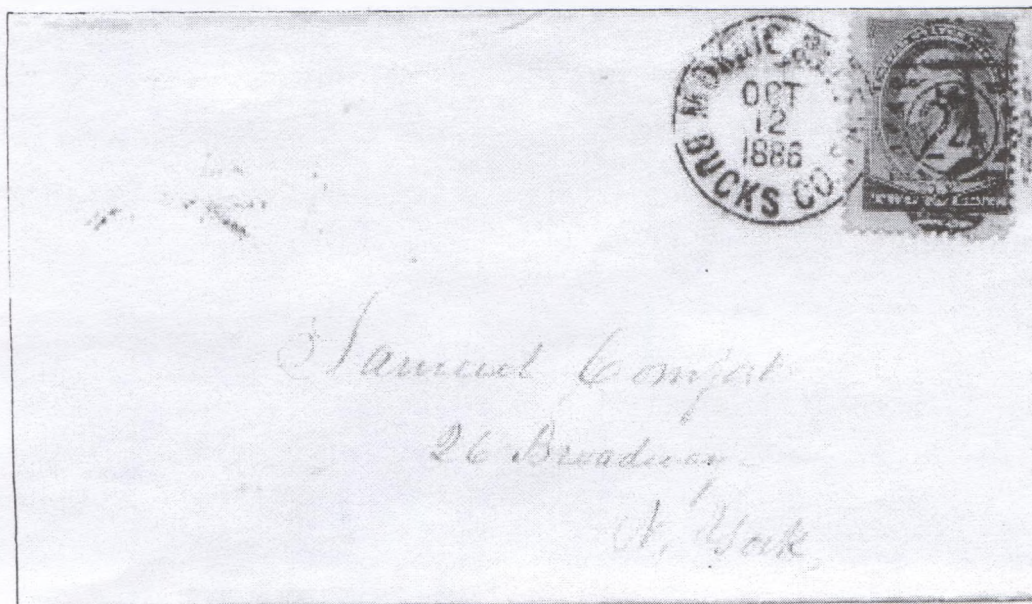 OCT
12
1886
BUCKS CO.
Samuel Comfort
26 Broadway
N. York